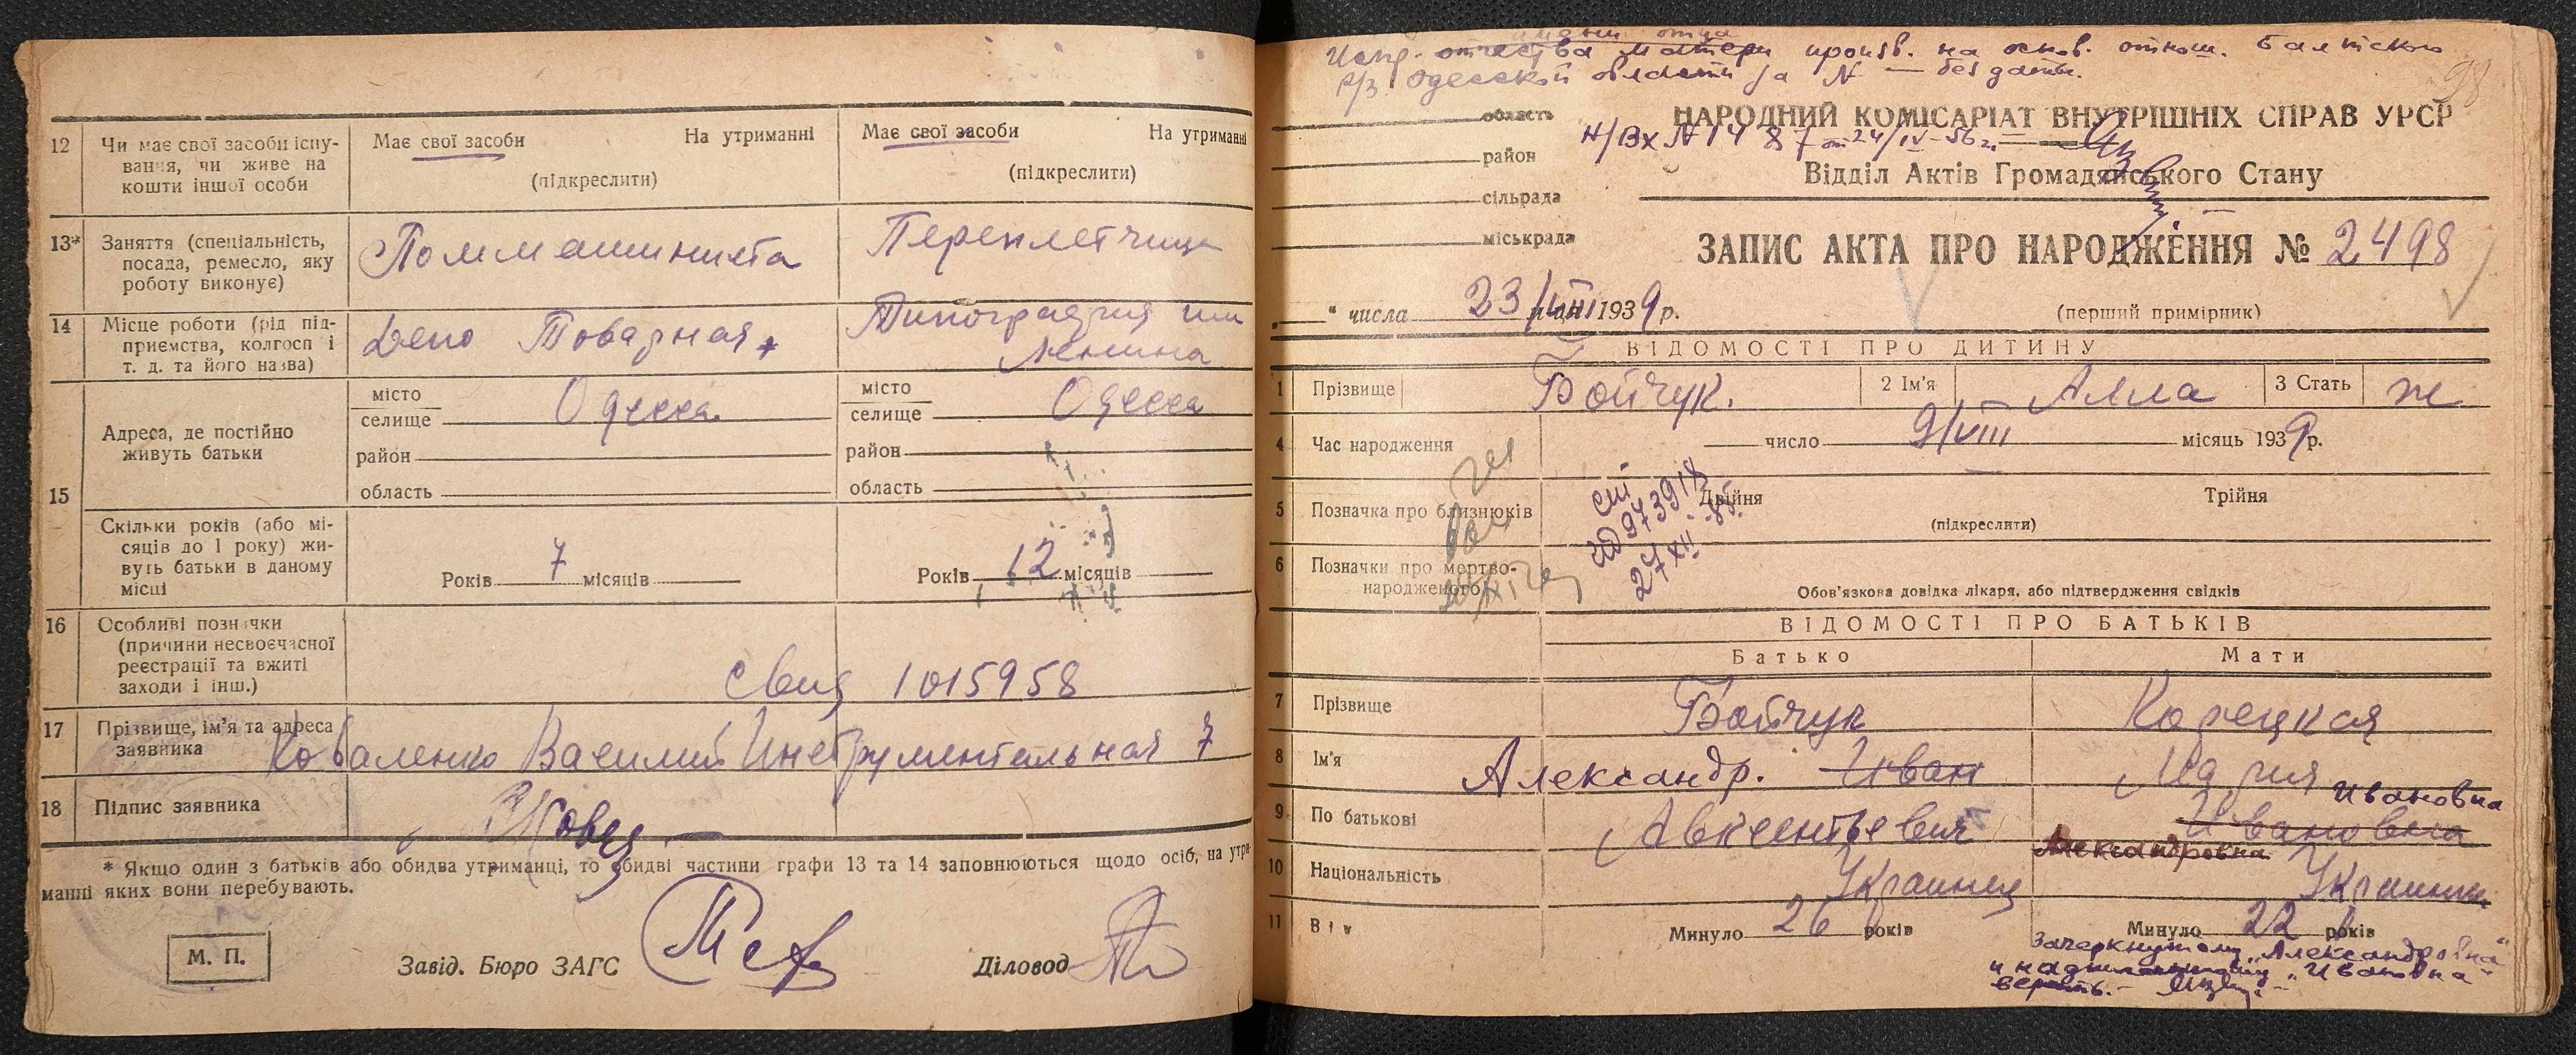 12 Чи має свої засоби існу-
вання, чи живе на
кошти іншої особи
Має свої засоби На утриманні
(підкреслити)
Має свої засоби На утриманні
(підкреслити)
13* Заняття (спеціальність,
посада, ремесло, яку
роботу виконує)
Поммашиниста
Переплетчица
14 Місце роботи (рід під-
приємства, колгосп і
т. д. та його назва)
Депо Товарная
Типография им
Ленина
15 Адреса, де постійно
живуть батьки
місто
селище Одесса
район
область
місто
селище Одесса
район
область
Скільки років (або мі-
сяців до 1 року) жи-
вуть батьки в даному
місці
Років 7 місяців
Років 12 місяців
16 Особливі позначки
(причини несвоєчасної
реєстрації та вжиті
заходи і інш.)
Свид 1015958
17 Прізвище, ім'я та адреса
заявника
Коваленко Василий Инструментальная 7
18 Підпис заявника
* Якщо один з батьків або обидва утриманці, то обидві частини графи 13 та 14 заповнюються щодо осіб, на утри-
манні яких вони перебувають.
М. П.
Завід. Бюро ЗАГС
Діловод
имени отца
Испр. отчества матери произв. на основ. отнош. Балтского
р/з. Одесской области за N — без даты.
98
Н/Вх N 14 87 от 24/IV-56 г.
область
район
сільрада
міськрада
НАРОДНИЙ КОМІСАРІАТ ВНУТРІШНІХ СПРАВ УРСР
Відділ Актів Громадянського Стану
ЗАПИС АКТА ПРО НАРОДЖЕННЯ № 2498
„ “ числа 23/VIII 1939 р.
(перший примірник)
ВІДОМОСТІ ПРО ДИТИНУ
1 Прізвище Бойчук. 2 Ім'я Алла 3 Стать ж
4 Час народження число 9/VIII місяць 1939 р.
5 Позначка про близнюків
Двійня Трійня
(підкреслити)
27 XII 85.
6 Позначки про мертво-
народженого
Обов'язкова довідка лікаря, або підтвердження свідків
ВІДОМОСТІ ПРО БАТЬКІВ
Батько Мати
7 Прізвище Бойчук Корецкая
8 Ім'я Александр. Иван Мария
9 По батькові Авксентьевич Ивановна
Ивановна
Александровна
10 Національність Украинец Украинка
11 Вік Минуло 26 років Минуло 22 років
Зачеркнутому „Александровна“
и надписанному „Ивановна“
верить.